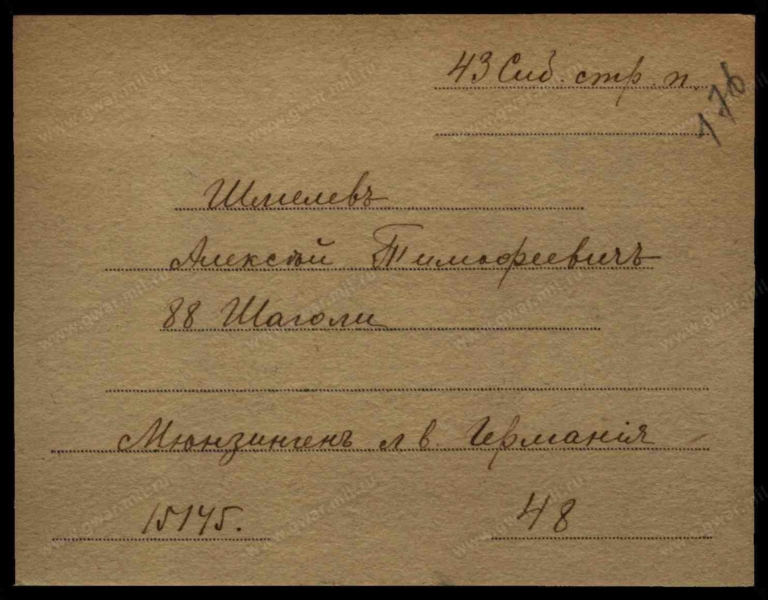 43 Сиб. стр. п.
176
Шмелевъ
Алексѣй Тимофеевичъ
88 Шаголи
Мюнзингенъ л в. Германія
15145.
48